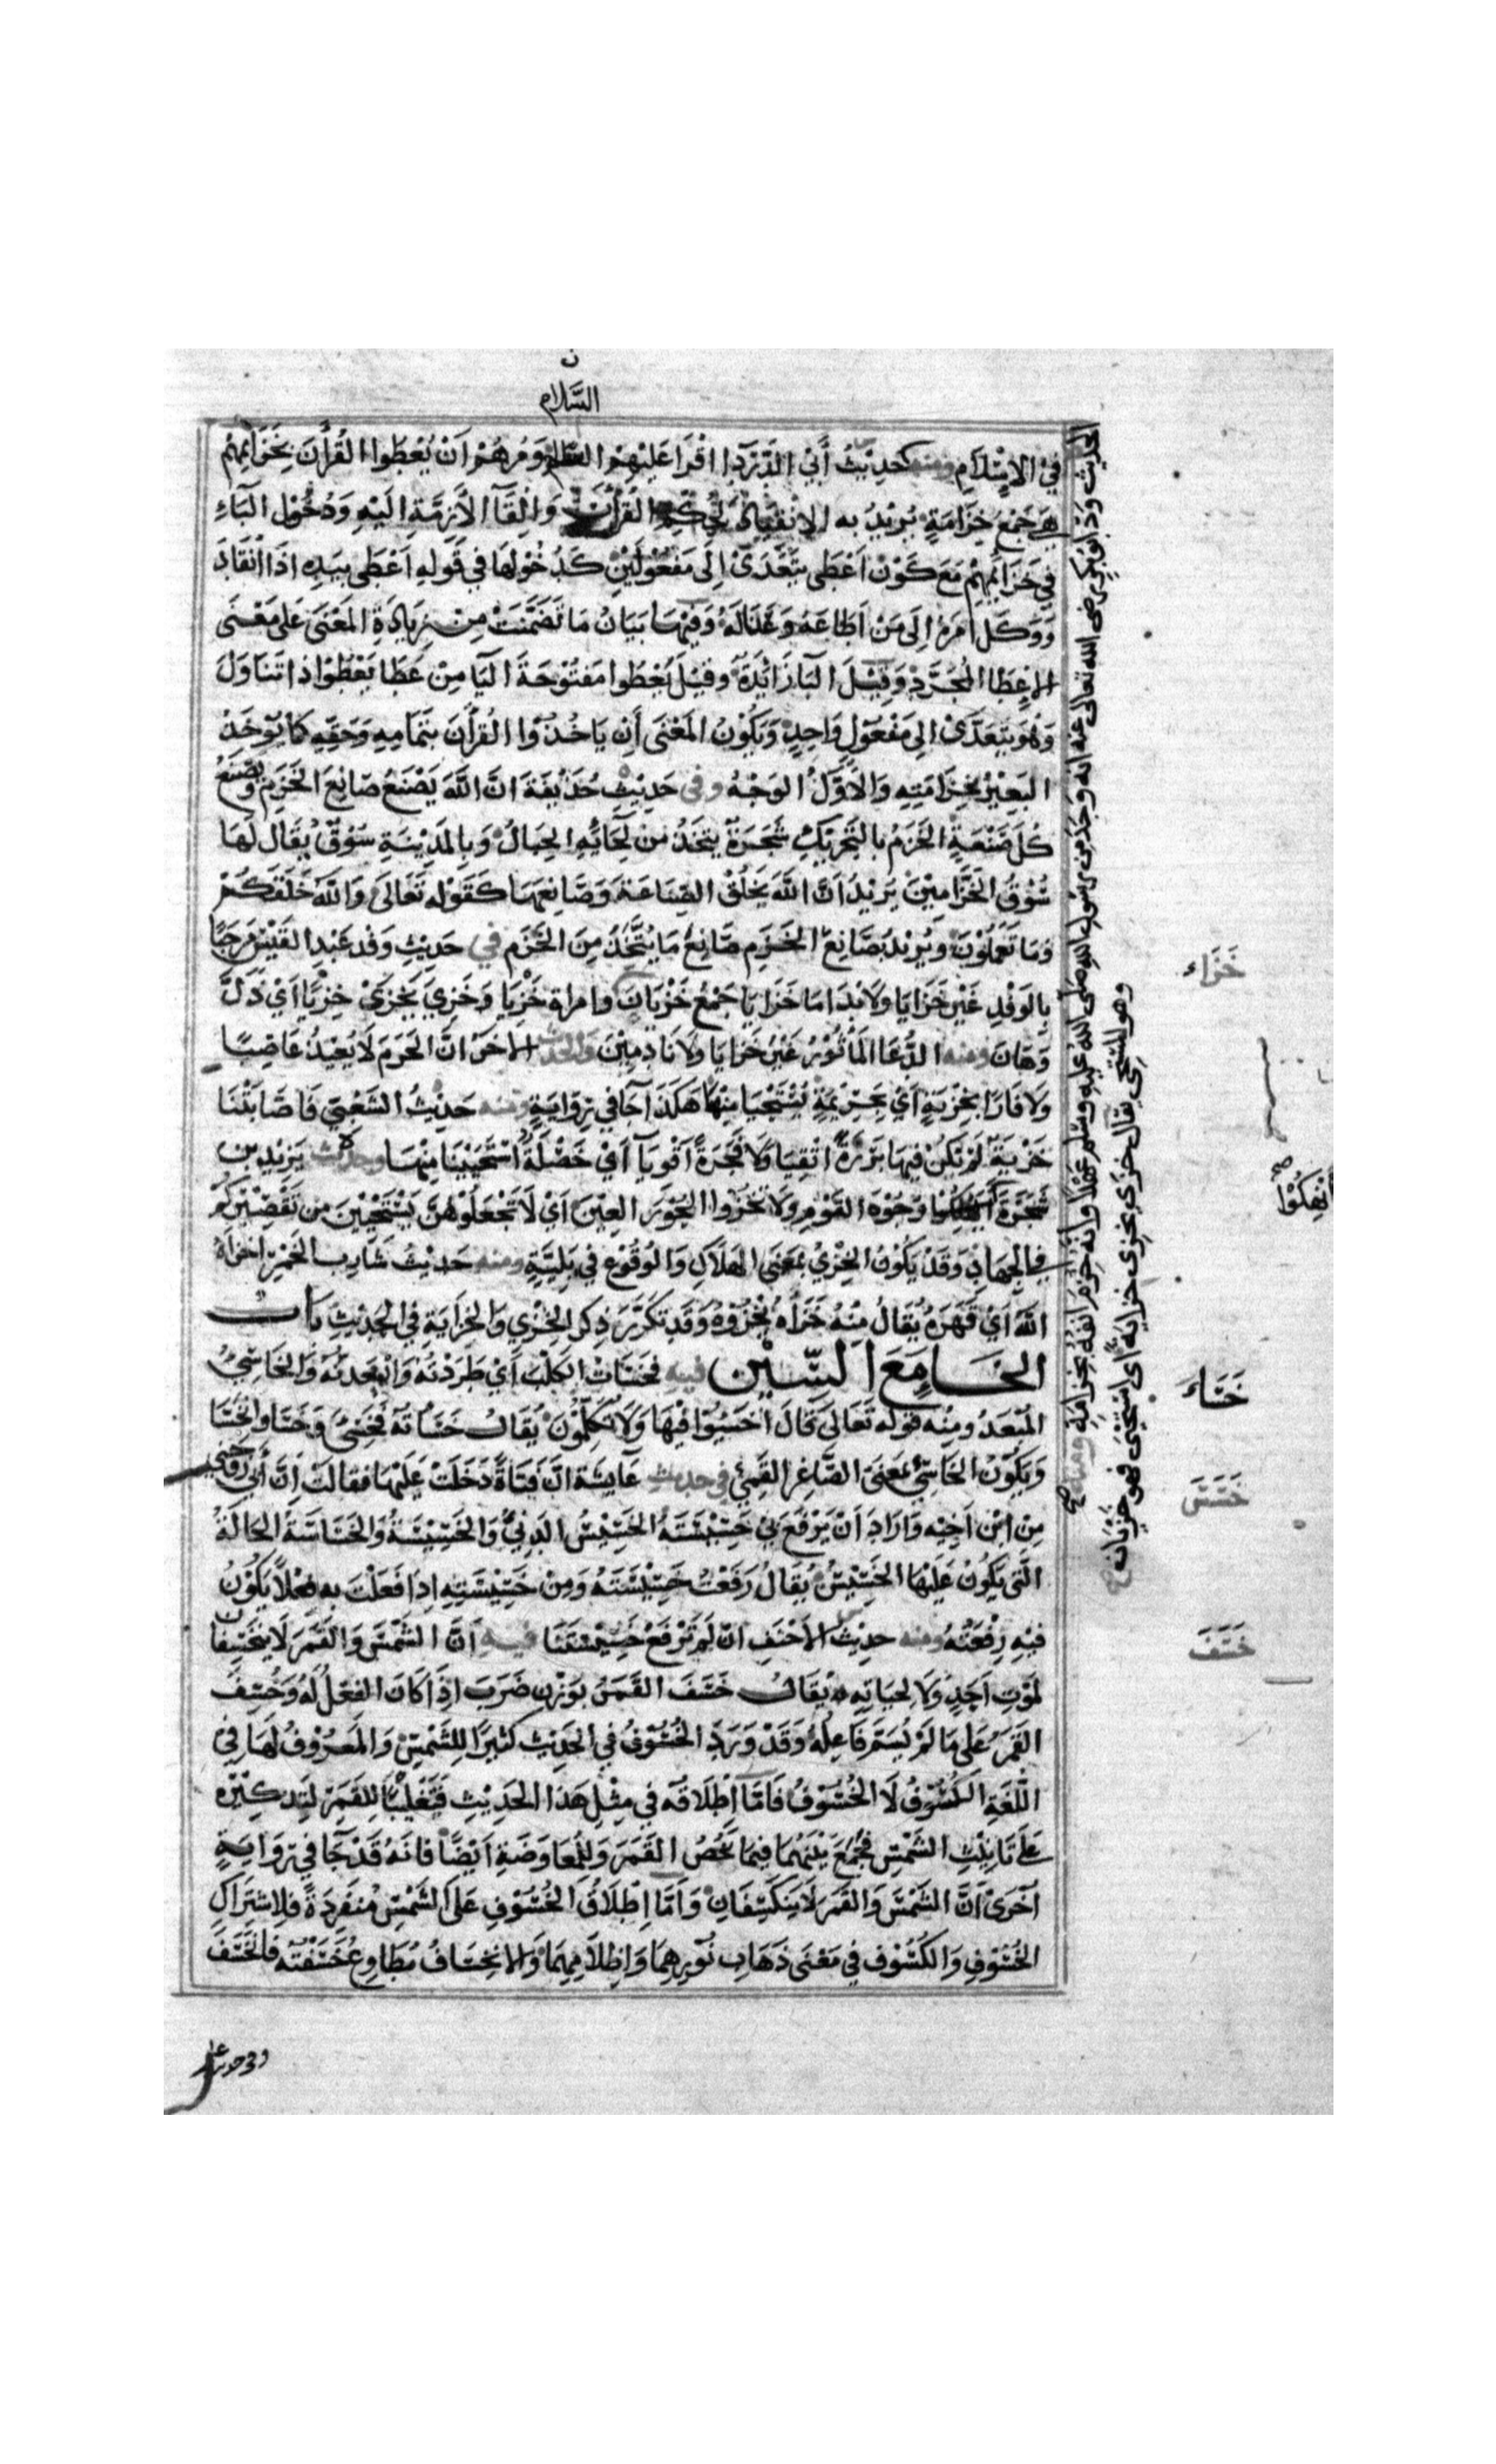 السَّلام
في الاِسْلَامِ ومنه حَدِيْثُ أَبي الدَّرْدَا اقْرَا عَلَيْهِمْ وَمُرْهُمْ اَنْ يُعْطُوا القُرْأٰنَ بِخَزَائِمِهِمْ
هي جَمْعُ خِزَامَةٍ يُرِيْدُ به الاِنْقِيَادَ لحُكْمِ القُرْأٰنِ وَالْقَآ الأَزِمَّةِ اليْهِ وَدُخُوْل البَآءِ
في خَزَائِمِهِمْ مَعَ كَوْن اَعْطَى يَتَعَدَّىْ اِلَى مَفعُوْلَيْنِ كَدُخُوْلِهَا في قَولِهِ اَعْطَى بيَدِهِ اذَا انْقَادَ
وَوَكَلَ اَمْرَهُ اِلَى مَنْ اَطَاعَهُ وَعَنَا لَهُ وَفِيْهَا بَيَانُ مَا تَضَمَّنَتْ مِنْ زِيَادَةِ المَعْنَى عَلى مَعْنَى
الاِعطَا المُجَرَّدِ وَقِيْلَ البَا زَائِدَةٌ وقيْلَ يَعْطُوا مَفْتُوحَةَ اليَا مِنْ عَطَا يَعْطُوْا ذا تَنَاوَلَ
وَهُوَ يَتَعَدَّىْ الى مَفْعُولٍ وَاحِدٍ وَيَكُوْنُ المَعْنَى أَنْ يَاخُذُوْا القُرْأٰنَ بتَمَامِهِ وَحَقِّهِ كَا يُوخَذُ
البَعِيْرُ بخِزَامَتِهِ وَالأَوَّلُ الوَجْهُ وفى حَدِيْثِ حُذَيْفَةَ انَّ اللَّهَ يَصْنَعُ صَانِعَ الخَزَمِ وَيَصْنَعُ
كُلَّ صَنْعَةٍ الخَزَمُ بالتَحْرِيْكِ شَجَرَةٌ يتخَذُ مِنْ لِحَائِهِ الحِبَالُ وَبِالمَدِيْنَةِ سُوْقٌ يُقَالُ لَهَا
سُوْقُ الخَزَّامِيْنَ يَرِيْدُ اَنَّ اللَّهَ يَخلُقُ الصِنَاعَةَ وَصَانِعَهَا كَقَوْلِه تَعَالَى وَاللَّه خَلَقَكُمْ
وَمَا تَعْمَلُوْنَ ويُريْدُ بِصَانِعِ الخَزَمِ صَانِعُ مَا يُتَّخَذُ مِنَ الخَزَمِ في حَدِيْثِ وَفدِ عَبْدِ القَيْسِ مَرحَبًا
بِالوَفْدِ غَيْرَ خَزَايَا وَلَا نَدَامَا خَزَايَا جَمْعُ خَزْيَانَ وامراة خَزْيَا وَخَزِيَ يَخزَىْ خِزْيًا اَيْ ذَلَّ
وَهَانَ ومنه الدُّعَا المَأثُوْرُ غَيْرَ خَزَايَا وَلَا نَادِمِيْنَ والحديث الاخَرُ انَّ الحَرَمَ لَا يُعِيْذُ عَاصِيًا
وَلَا فَارًا بِخِزْيَةٍ اَيْ بجَرِيْمَةٍ يُسْتَحْيَا مِنْهَا هَكَذَا جَا في رِوَايَةٍ ومنه حَدِيْثُ الشَّعْبِي فَاَصَابَتْنَا
خَزْيَةٌ لَمْ نَكُنْ فِيهَا بَرَرَةً اتْقِيَا وَلَا فَجَرَةً اَقْوِيَآ اَيْ خَصْلَةٌ اسْتَحْيَيْنَا مِنْهَا وحديث يَزِيْدَ بن
شَجَرَةَ وُجُوْهَ القَوْمِ وَلَا تخزُوا الحُوْرَ العِيْنَ اَيْ لَا تَجْعَلُوْهُنَّ يَسْتَحْيِيْنَ مِن تَقْصِيْرِكُمْ
في الجِهَادِ وَقَدْ يَكُوْنُ الخِزْيُ بمَعْنَى الهَلَاكِ وَالوُقُوْعِ في بَلِيَّةٍ ومنه حَدِيْثُ شَارِبِ الخَمْرِ اخزَاهُ
اللَّهُ اَيْ قَهَرَهُ يُقَالُ مِنْهُ خَزَاهُ يَخْزُوْهُ وَقَدْ تكَرَّرَ ذِكرُ الخِزْيِ وَالخِزَايَةِ فِي الحَدِيْثِ بَابُ
الخَامِعَ السِّيْن فيه فَخَسَاتُ الكَلْبَ اَيْ طَرَدْتُهُ وَاَبْعَدتُهُ وَالخَاسِئُ
المُبْعَدُ ومِنْه قَوله تَعَالَى قَالَ اخسَئُوْا فيْهَا وَلَا تُكَلِّمُوْن يُقَالُ خَسَاتُه فَخَسِئَ وَخَسَا وانْخَسَا
وَيَكُوْنُ الخَاسِئُ بمَعْنَى الصَّاغِرِ القَمِئِ في حديث عَايِشَة انَّ فَتَاةً دَخَلَتْ عَلَيْهَا فقالَتْ اِنَّ أَبي زَوَّجَنِي
مِن ابْن اَخِيْهِ وَارَادَ اَنْ يَرْفَعَ بيْ خَسِيْسَتَهُ الخَسِيْسُ الدَنِيُّ وَالخَسِيْسَةُ وَالخَسَاسَةُ الحَالَةُ
الَّتى يَكُوْنُ عَلَيْهَا الخَسِيْسُ يُقَالُ رَفَعْتُ خَسِيْسَتَهُ وَمِنْ خَسِيْسَتِهِ اِذا فَعَلْتَ بِهِ فِعْلاً يَكُوْنُ
فيْهِ رِفْعَتُهُ ومنه حديث الاحْنَفِ انْ لَمْ تَرْفَعْ خَسِيْسَتَنَا فيه اَنَّ الشَّمْسَ وَالقَمَرَ لَا يَنخَسِفَانِ
لمَوْتِ اَحَدٍ وَلَا لحيَاتِهِ يُقَالُ خَسَفَ القَمَرُ بوَزْنِ ضَرَبَ اِذَا كَانَ الفِعْلُ لَهُ وَخُسِفَ
القَمَرُ عَلى مَا لَمْ يُسَمَّ فَاعِلُهُ وَقَدْ وَرَدَ الخُسُوْفُ في الحَدِيْثِ كَثيْرًا لِلشَّمْسِ وَالمَعْرُوْفُ لَهَا فِي
اللُّغَةِ الكُسُوْفُ لَا الخُسُوْفُ فَامَّا اِطْلَاقُه في مِثْلِ هَذا الحَدِيْثِ فَتَغْلِيْبًا لِلقَمَرِ لتَذكِيْرِه
عَلى تَانِيْثِ الشَّمْسِ فَجُمِعَ بَيْنَهُمَا فيمَا يَخُصُ القَمَرَ وَلِلمُعَاوَضَةِ اَيْضًا فَانَهُ قَدْ جَا في رِوَايَةٍ
اُخرَىْ اَنَّ الشَّمْسَ وَالقَمَرَ لَا يَنكَسِفَانِ وَاَمَّا اِطْلَاقُ الخُسُوْفِ عَلى الشَّمْسِ مُنْفَرِدَةً فلِاشتِرَاكِ
الخُسُوْفِ وَالكُسُوْفِ في مَعْنَى ذَهَابِ نُوْرِهِمَا وَاِظلَامِهِمَا وَالانخِسَافُ مُطَاوِعُ خَسَفْتُه فانخَسَفَ
الحديث وَدَّ ابو بَكْرٍ رضى الله تعالى عنه انه وجد من رسول الله صَلى الله عليه وسَلم عَهْدًا وأنه خُزِمَ انفُه بخِزامَةٍ
وهو المستحى يقال خزى يخزى خزاية أى استحيى فهو خزيان صح
خَزَاء
أنْهِكُوْا
صح
خَسَاءَ
خَسَسَ
خَسَفَ